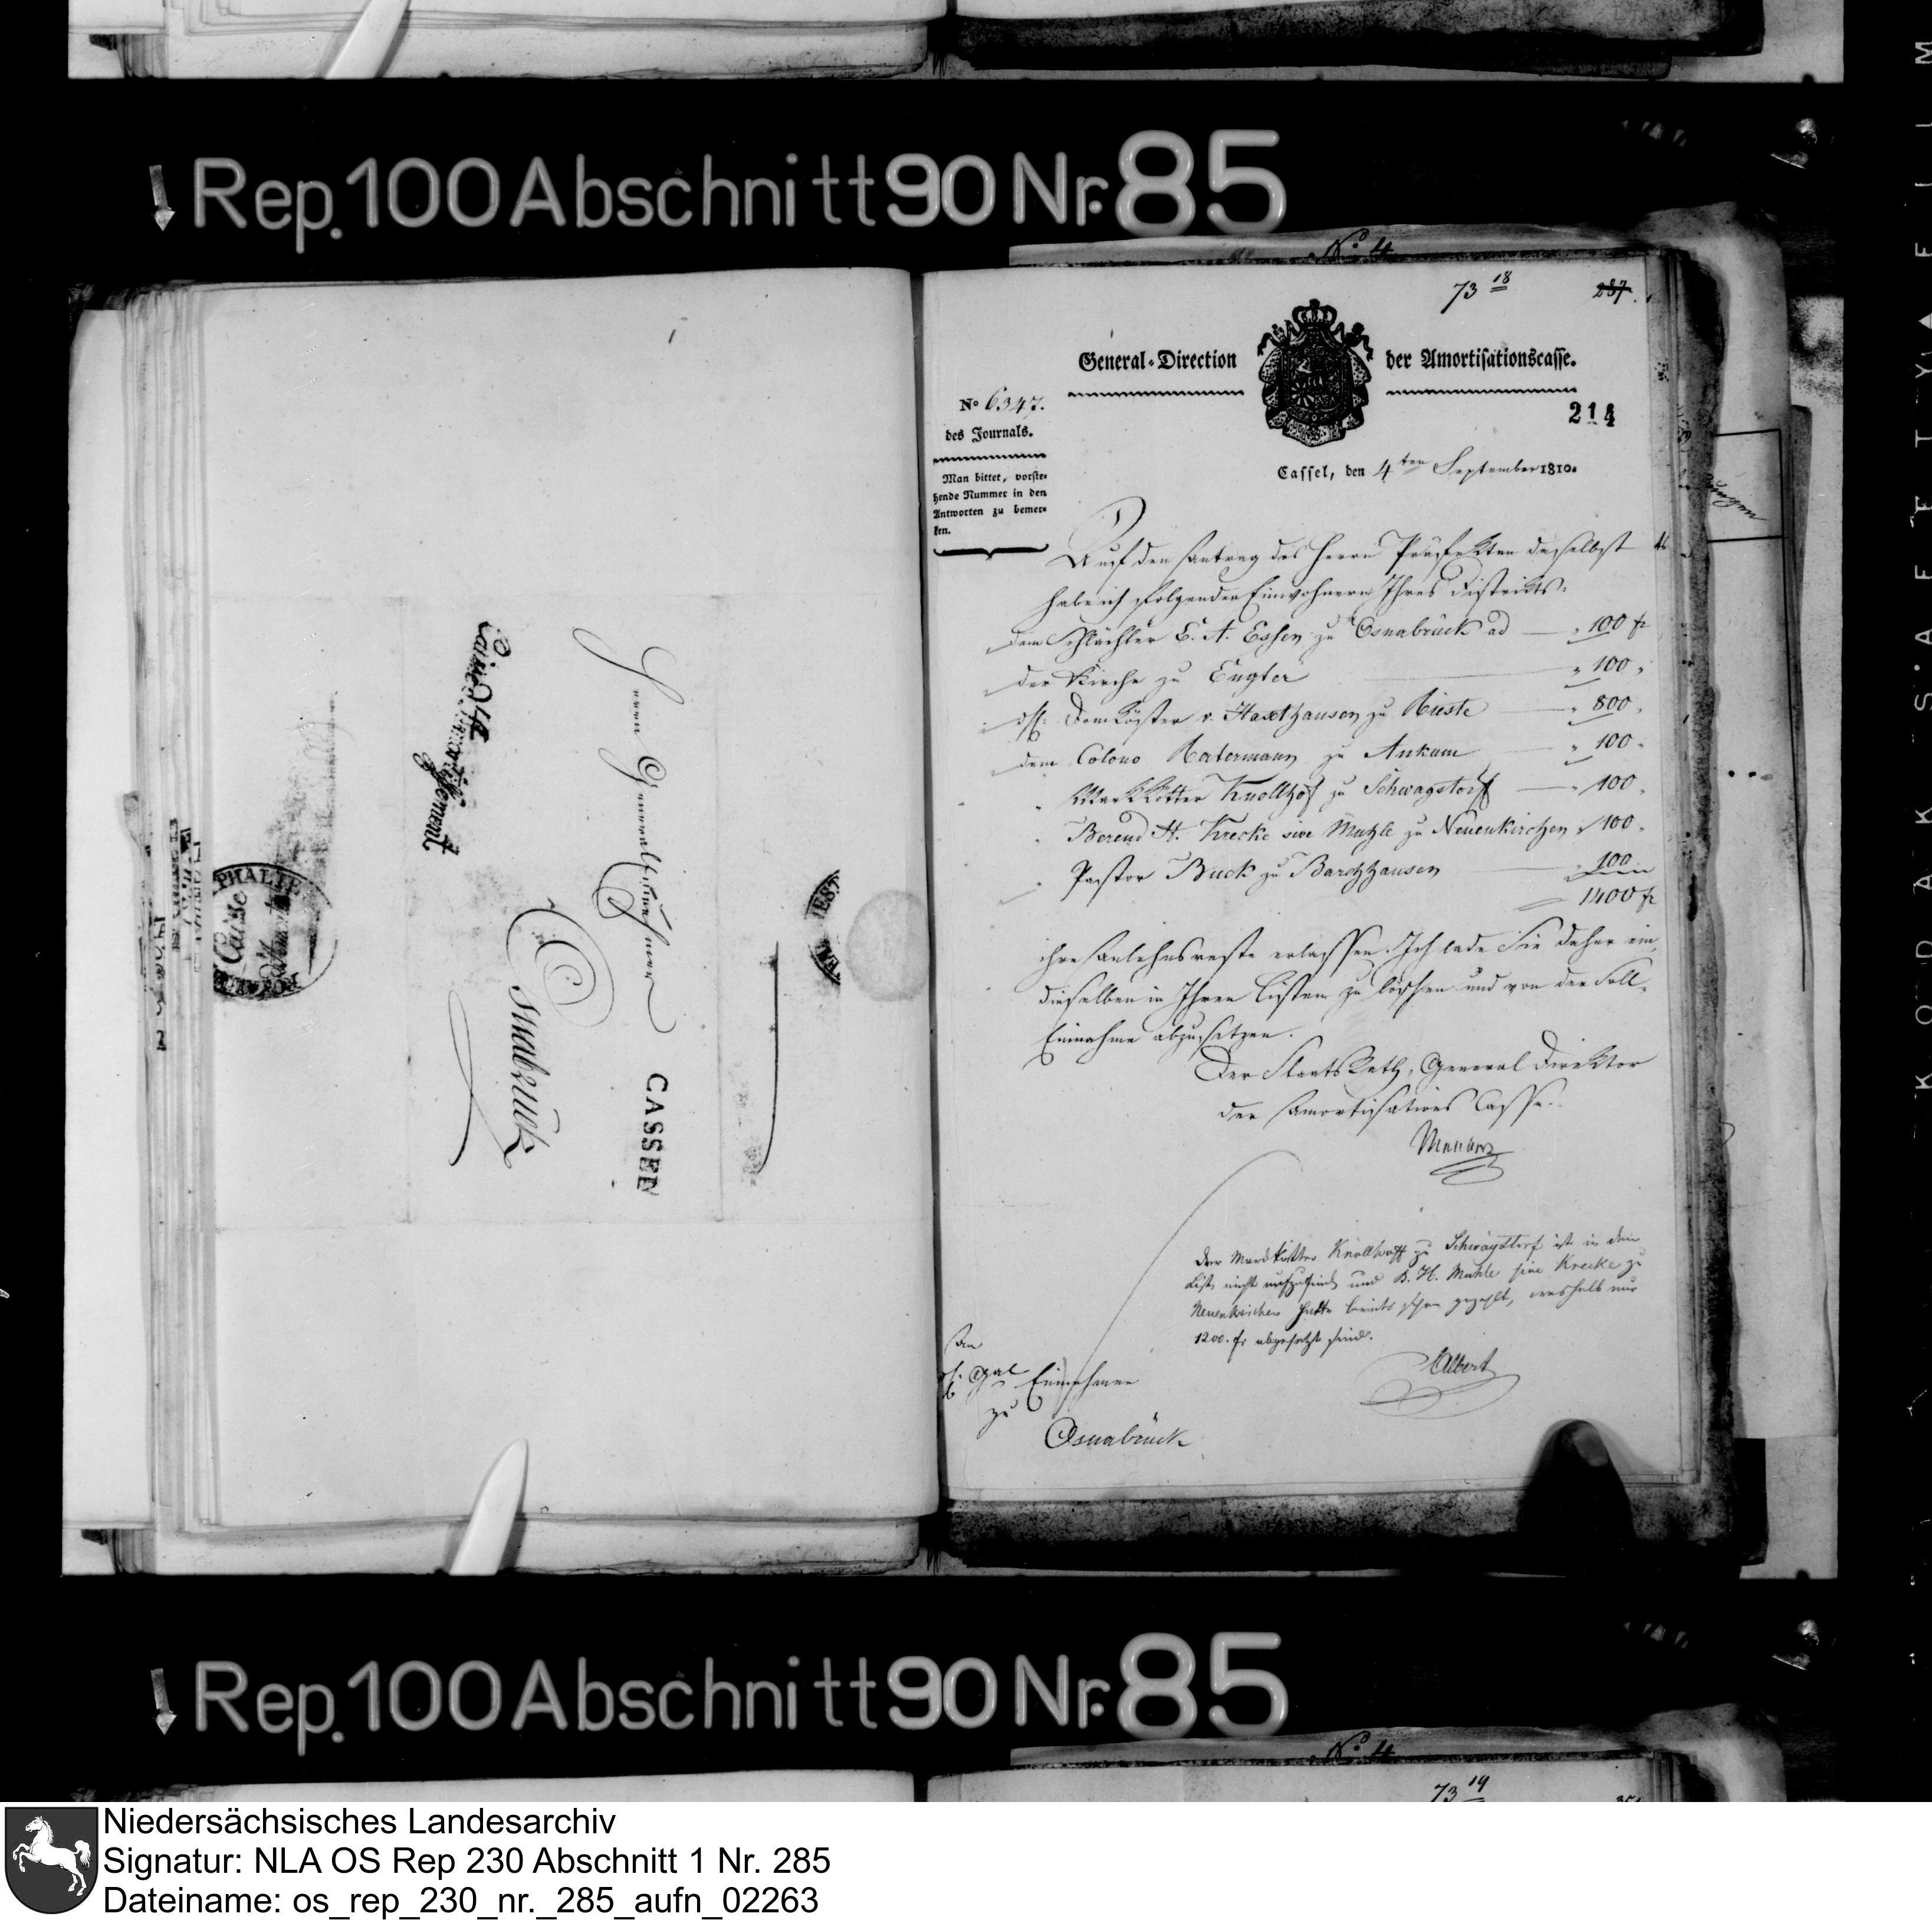 Rep. 100 Abschnitt 90 Nr. 85
No. 4
73 18
287.
General-Direction der Amortisationscasse.
No 6347.
des Journals.
214
Man bittet, vorste-
hende Nummer in den
Antworten zu bemer-
ken.
Cassel, den 4ten September 1810.
Auf den Antrag des Herrn Präfekten daselbst
habe ich folgenden Einwohnern Ihres Distrikts:
dem Schlächter E. A. Essen zu Osnabrück ad — " 100 fr
der Kirche zu Engter — " 100 "
dem Küster v. Haxthausen zu Rieste — " 800 "
dem Colono Ratermann zu Ankum — " 100 "
" Markkötter Knollhof zu Schwagstorf — " 100 "
" Berend H. Krecke sive Muhle zu Neuenkirchen " 100 "
" Pastor Buck zu Barchhausen — " 100
1400 fr
ihre Anlehnsreste erlassen. Ich lade Sie daher ein,
dieselben in Ihren Listen zu löschen und von der Soll-
Einnahme abzusetzen.
Der Staats Rath, General Direktor
der Amortisations Casse.
Der Markkötter Knollhoff zu Schwagstorf ist in den
Listen nicht aufzufinden und B. H. Muhle sive Krecke zu
Neuenkirchen hatte bereits schon gezahlt, weshalb nur
1200. fr abgesetzt sind.
Albert
An
Gnal Einnehmer
zu
Osnabrück
Herrn General Einnehmer
Osnabrück
CASSEL
Caisse d'Amortissement
PHALIE
Caisse
Rep. 100 Abschnitt 90 Nr. 85
No. 4
73 19
Niedersächsisches Landesarchiv
Signatur: NLA OS Rep 230 Abschnitt 1 Nr. 285
Dateiname: os_rep_230_nr._285_aufn_02263